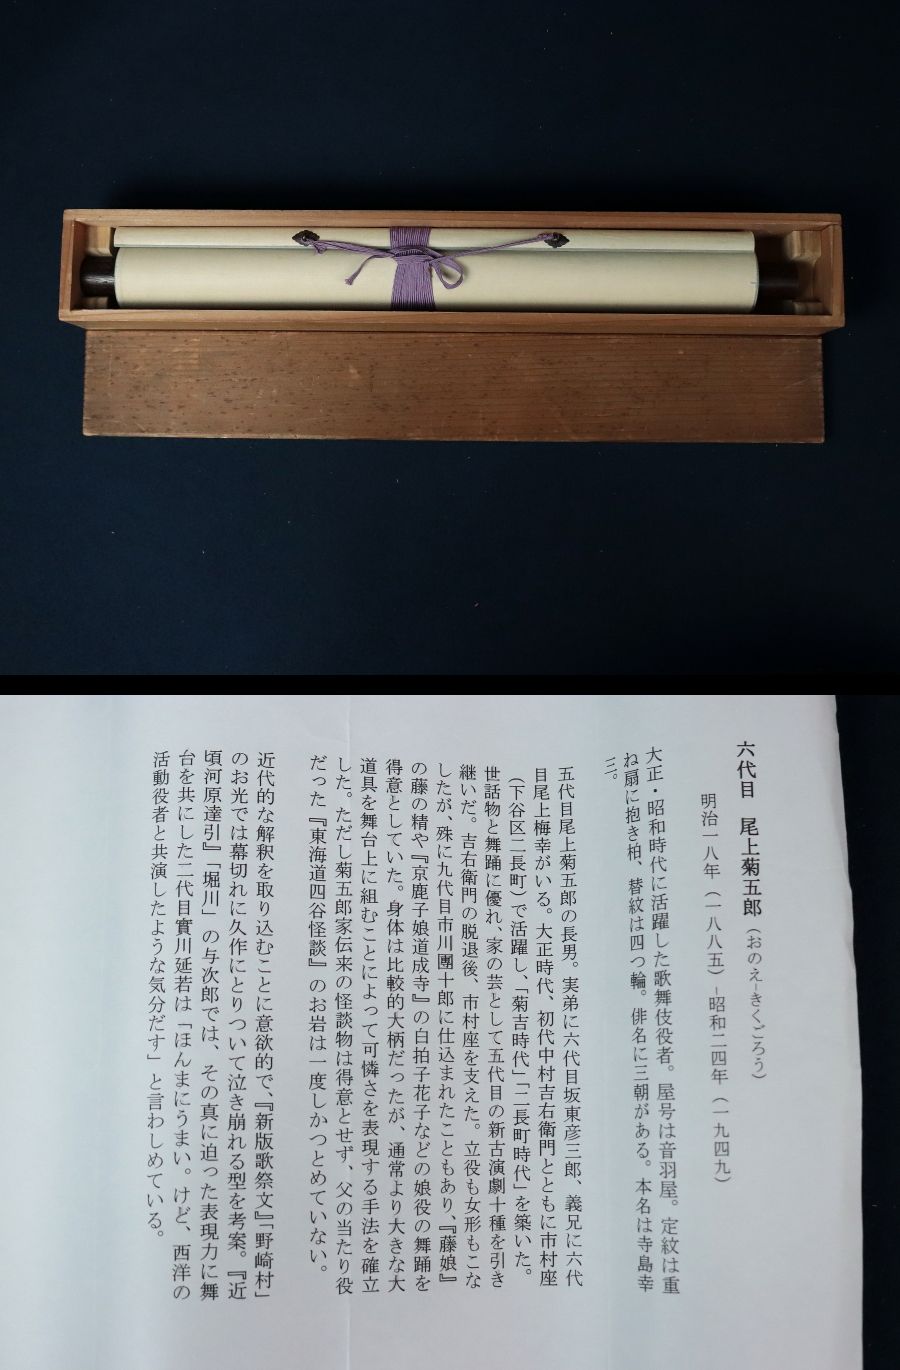 六代目　尾上菊五郎（おのえ−きくごろう）
明治一八年（一八八五）−昭和二四年（一九四九）
大正・昭和時代に活躍した歌舞伎役者。屋号は音羽屋。定紋は重
ね扇に抱き柏、替紋は四つ輪。俳名に三朝がある。本名は寺島幸
三。
五代目尾上菊五郎の長男。実弟に六代目坂東彦三郎、義兄に六代
目尾上梅幸がいる。大正時代、初代中村吉右衛門とともに市村座
（下谷区二長町）で活躍し、「菊吉時代」「二長町時代」を築いた。
世話物と舞踊に優れ、家の芸として五代目の新古演劇十種を引き
継いだ。吉右衛門の脱退後、市村座を支えた。立役も女形もこな
したが、殊に九代目市川團十郎に仕込まれたこともあり、『藤娘』
の藤の精や『京鹿子娘道成寺』の白拍子花子などの娘役の舞踊を
得意としていた。身体は比較的大柄だったが、通常より大きな大
道具を舞台上に組むことによって可憐さを表現する手法を確立
した。ただし菊五郎家伝来の怪談物は得意とせず、父の当たり役
だった『東海道四谷怪談』のお岩は一度しかつとめていない。
近代的な解釈を取り込むことに意欲的で、『新版歌祭文』「野崎村」
のお光では幕切れに久作にとりついて泣き崩れる型を考案。『近
頃河原達引』「堀川」の与次郎では、その真に迫った表現力に舞
台を共にした二代目實川延若は「ほんまにうまい。けど、西洋の
活動役者と共演したような気分だす」と言わしめている。